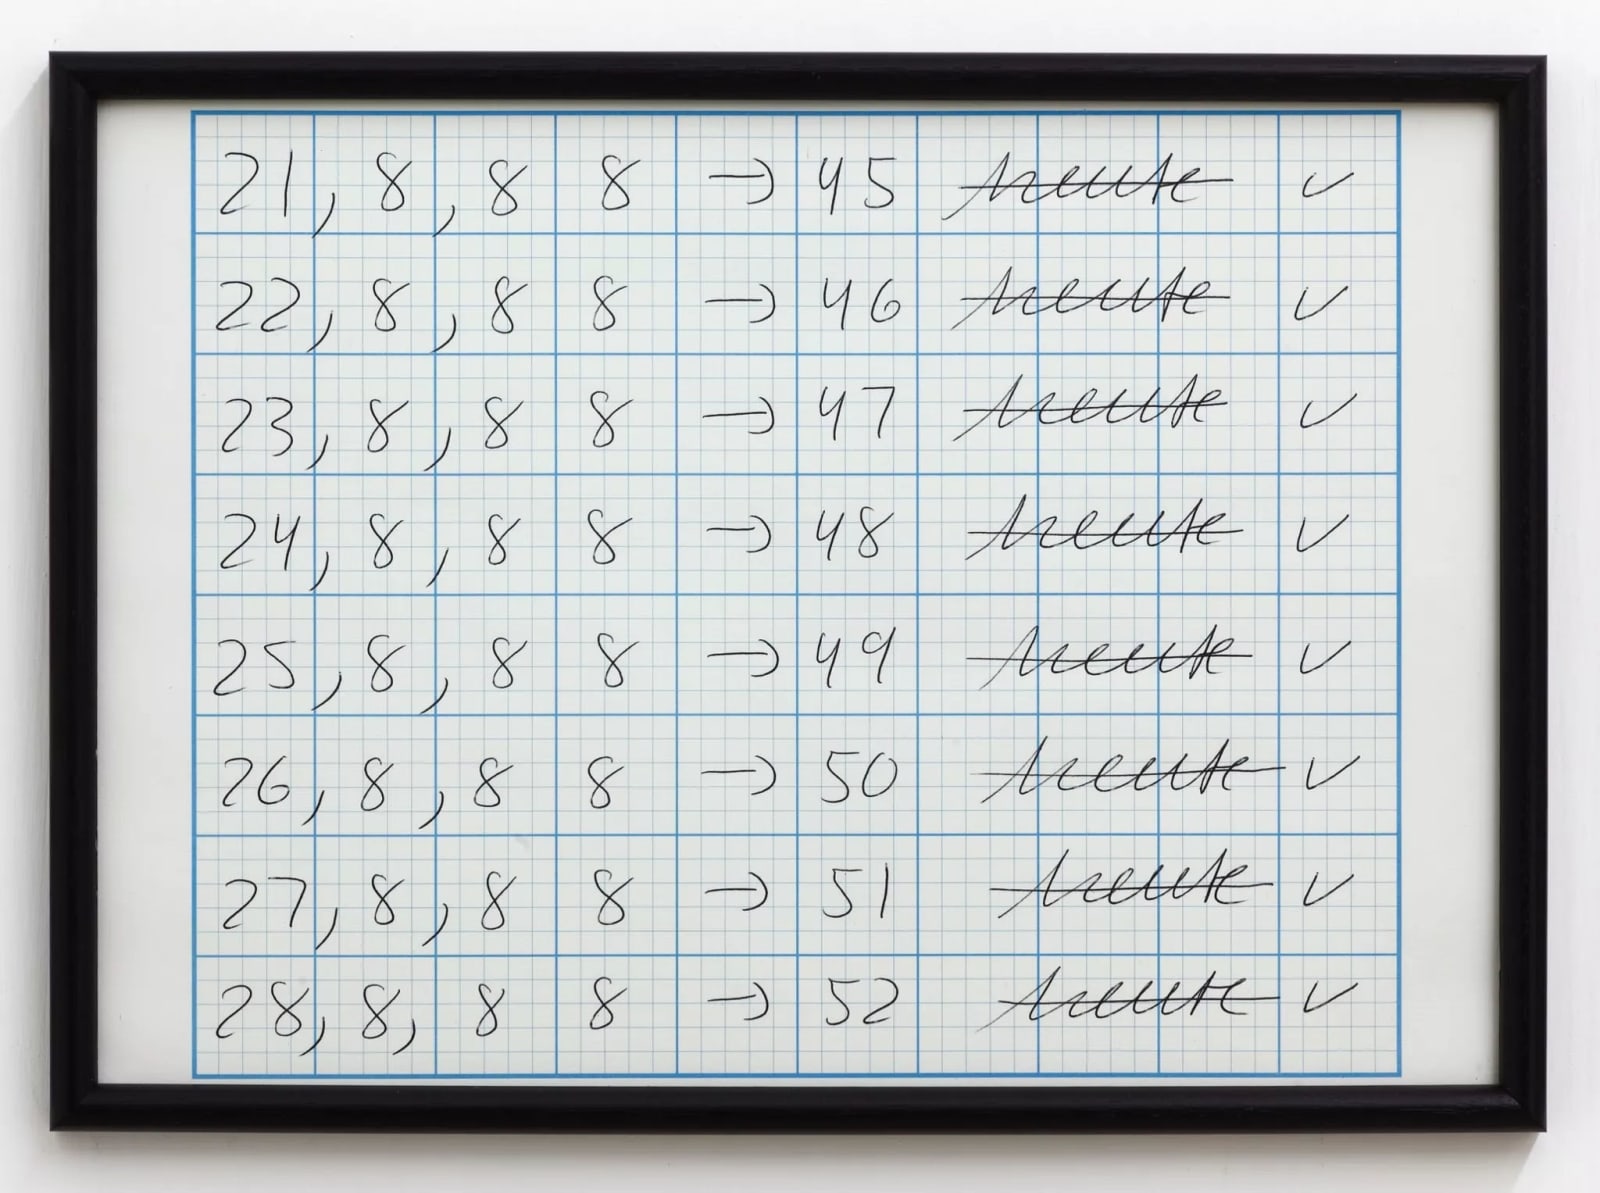 21, 8, 8 8 → 45 heute ✓
22, 8, 8 8 → 46 heute ✓
23, 8, 8 8 → 47 heute ✓
24, 8, 8 8 → 48 heute ✓
25, 8, 8 8 → 49 heute ✓
26, 8, 8 8 → 50 heute ✓
27, 8, 8 8 → 51 heute ✓
28, 8, 8 8 → 52 heute ✓